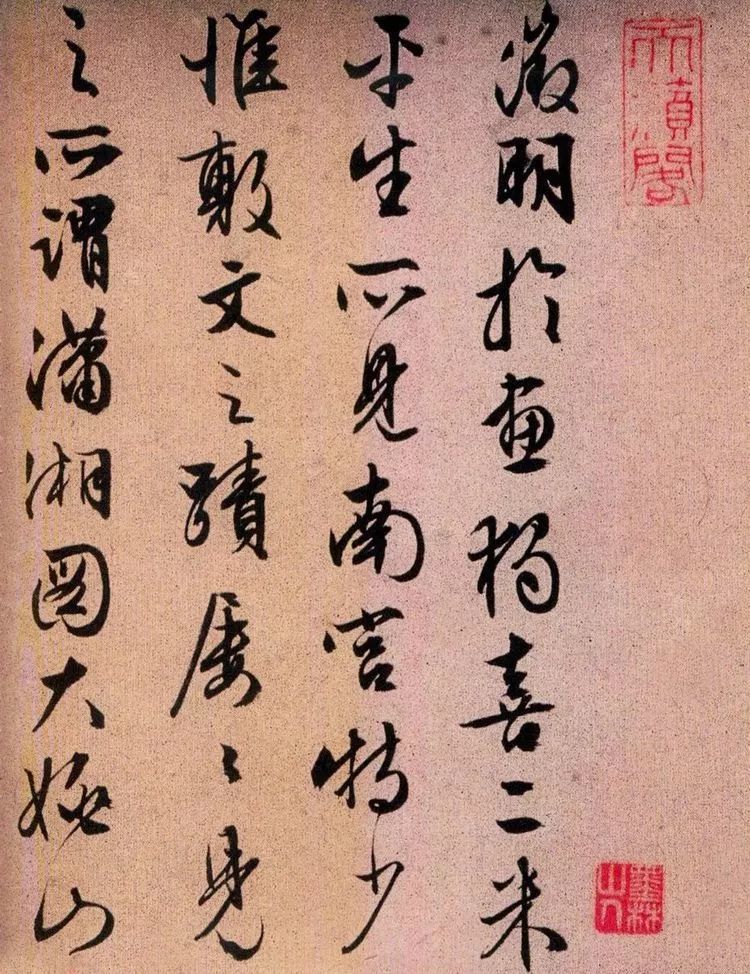 徵明於畫獨喜二米
平生所見南宮特少
惟敷文之蹟屢〻見
之所謂瀟湘圖大姚山